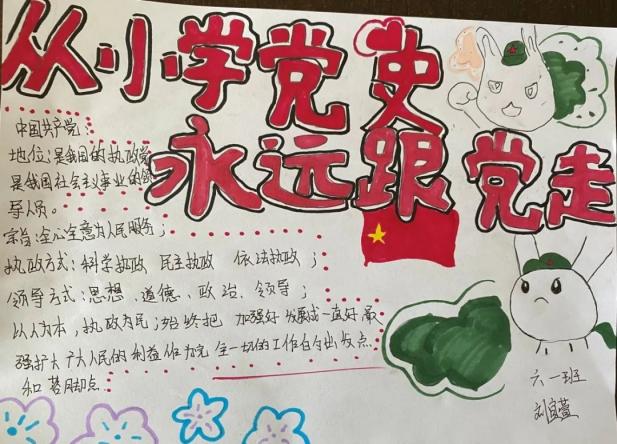 从小学党史
永远跟党走
中国共产党：
地位：是我国的执政党
是我国社会主义事业的领
导人员。
宗旨：全心全意为人民服务；
执政方式：科学执政 民主执政 依法执政；
领导方式：思想、道德、政治、领导；
以人为本，执政为民；始终把 加强好 发展成一直好
广大人民的利益作为 全一切的工作的出发点
和 落脚点
六一班